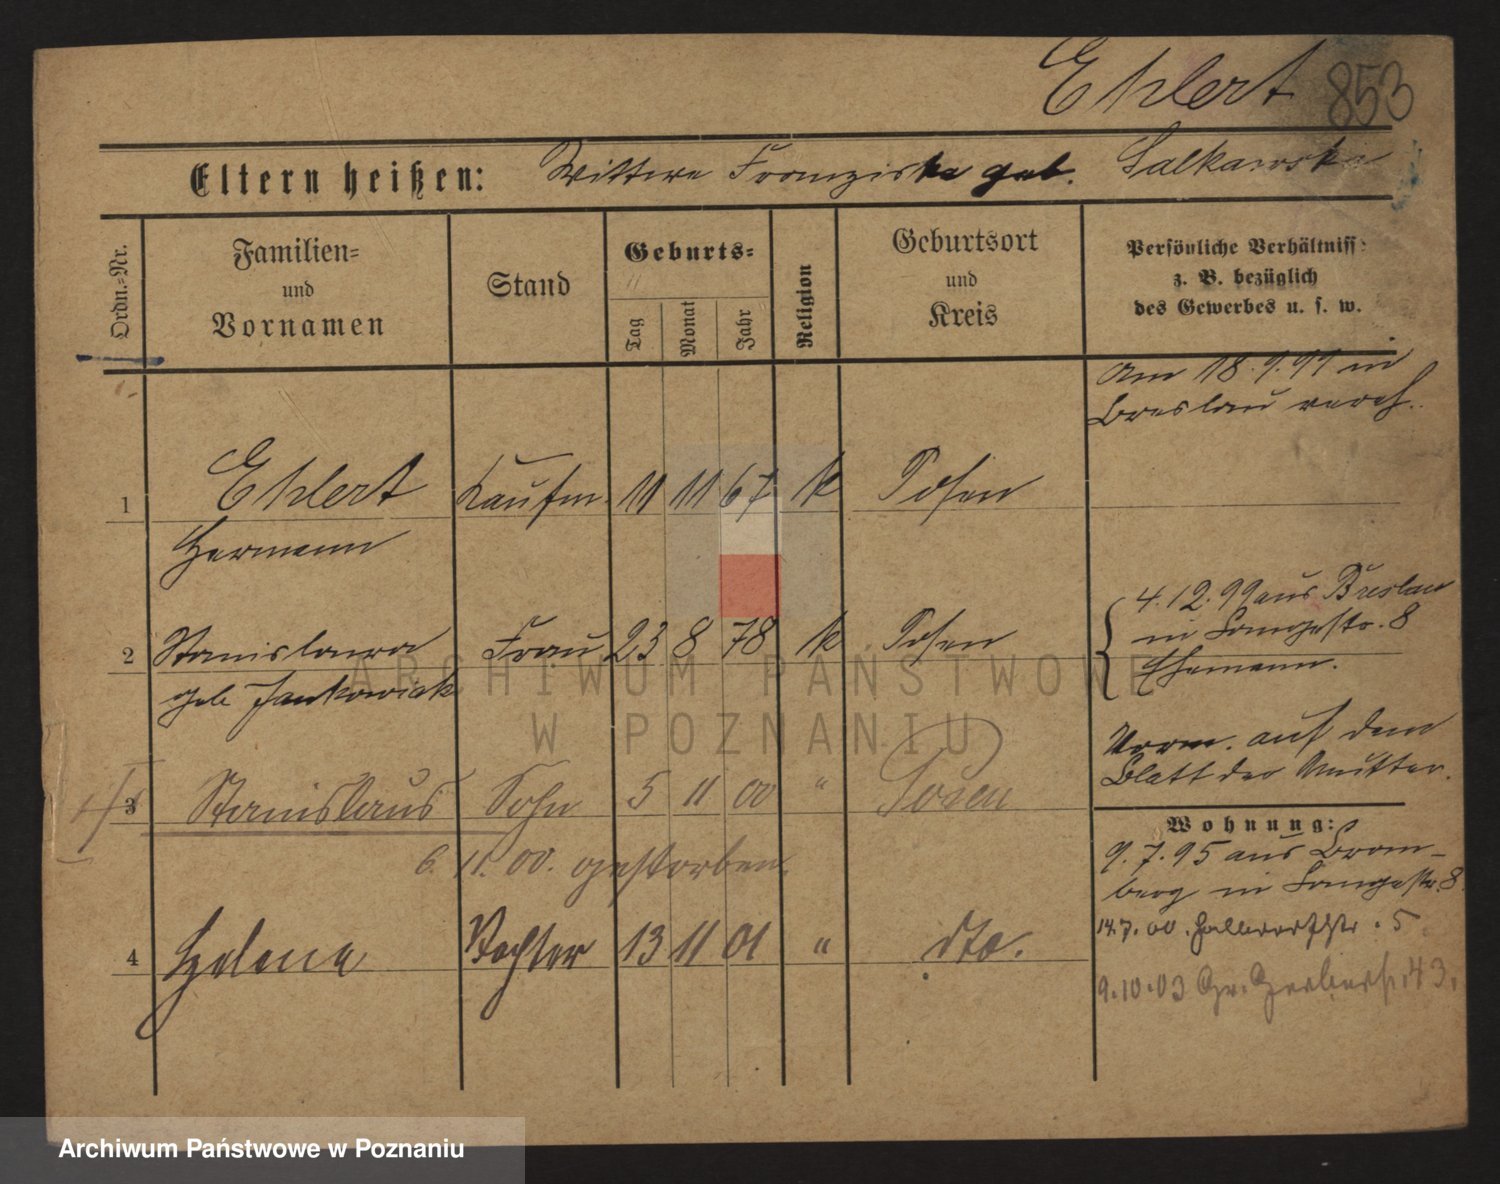 Ehlert 853
Eltern heißen: Wittwe Franziska geb. Salkawska
Ordn.-Nr.
Familien-
und
Vornamen
Stand
Geburts-
Tag
Monat
Jahr
Religion
Geburtsort
und
Kreis
Persönliche Verhältniss
z. B. bezüglich
des Gewerbes u. s. w.
Am 18.9.99 in
Breslau vereh.
1 Ehlert Kaufm. 11 11 67 k Posen
Hermann
4.12.99 aus Breslau
in Langestr. 8
Ehemann.
2 Stanislawa Frau 23 8 78 k Posen
geb Jankowiak
Vorm. auf dem
Blatt der Mutter.
3 Stanislaus Sohn 5 11 00 " Posen
6. 11. 00. gestorben.
Wohnung:
9.7.95 aus Brom-
berg in Langestr. 8
14.7.00. Halbdorfstr. 5
9.10.03 Gr. Gerberstr. 43.
4 Helena Tochter 13 11 01 " dto.
ARCHIWUM PAŃSTWOWE
W POZNANIU
Archiwum Państwowe w Poznaniu